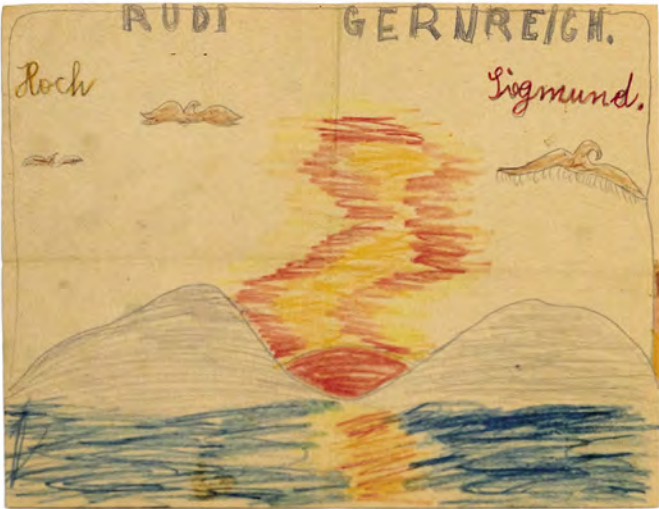 RUDI GERNREICH.
Hoch Sigmund.